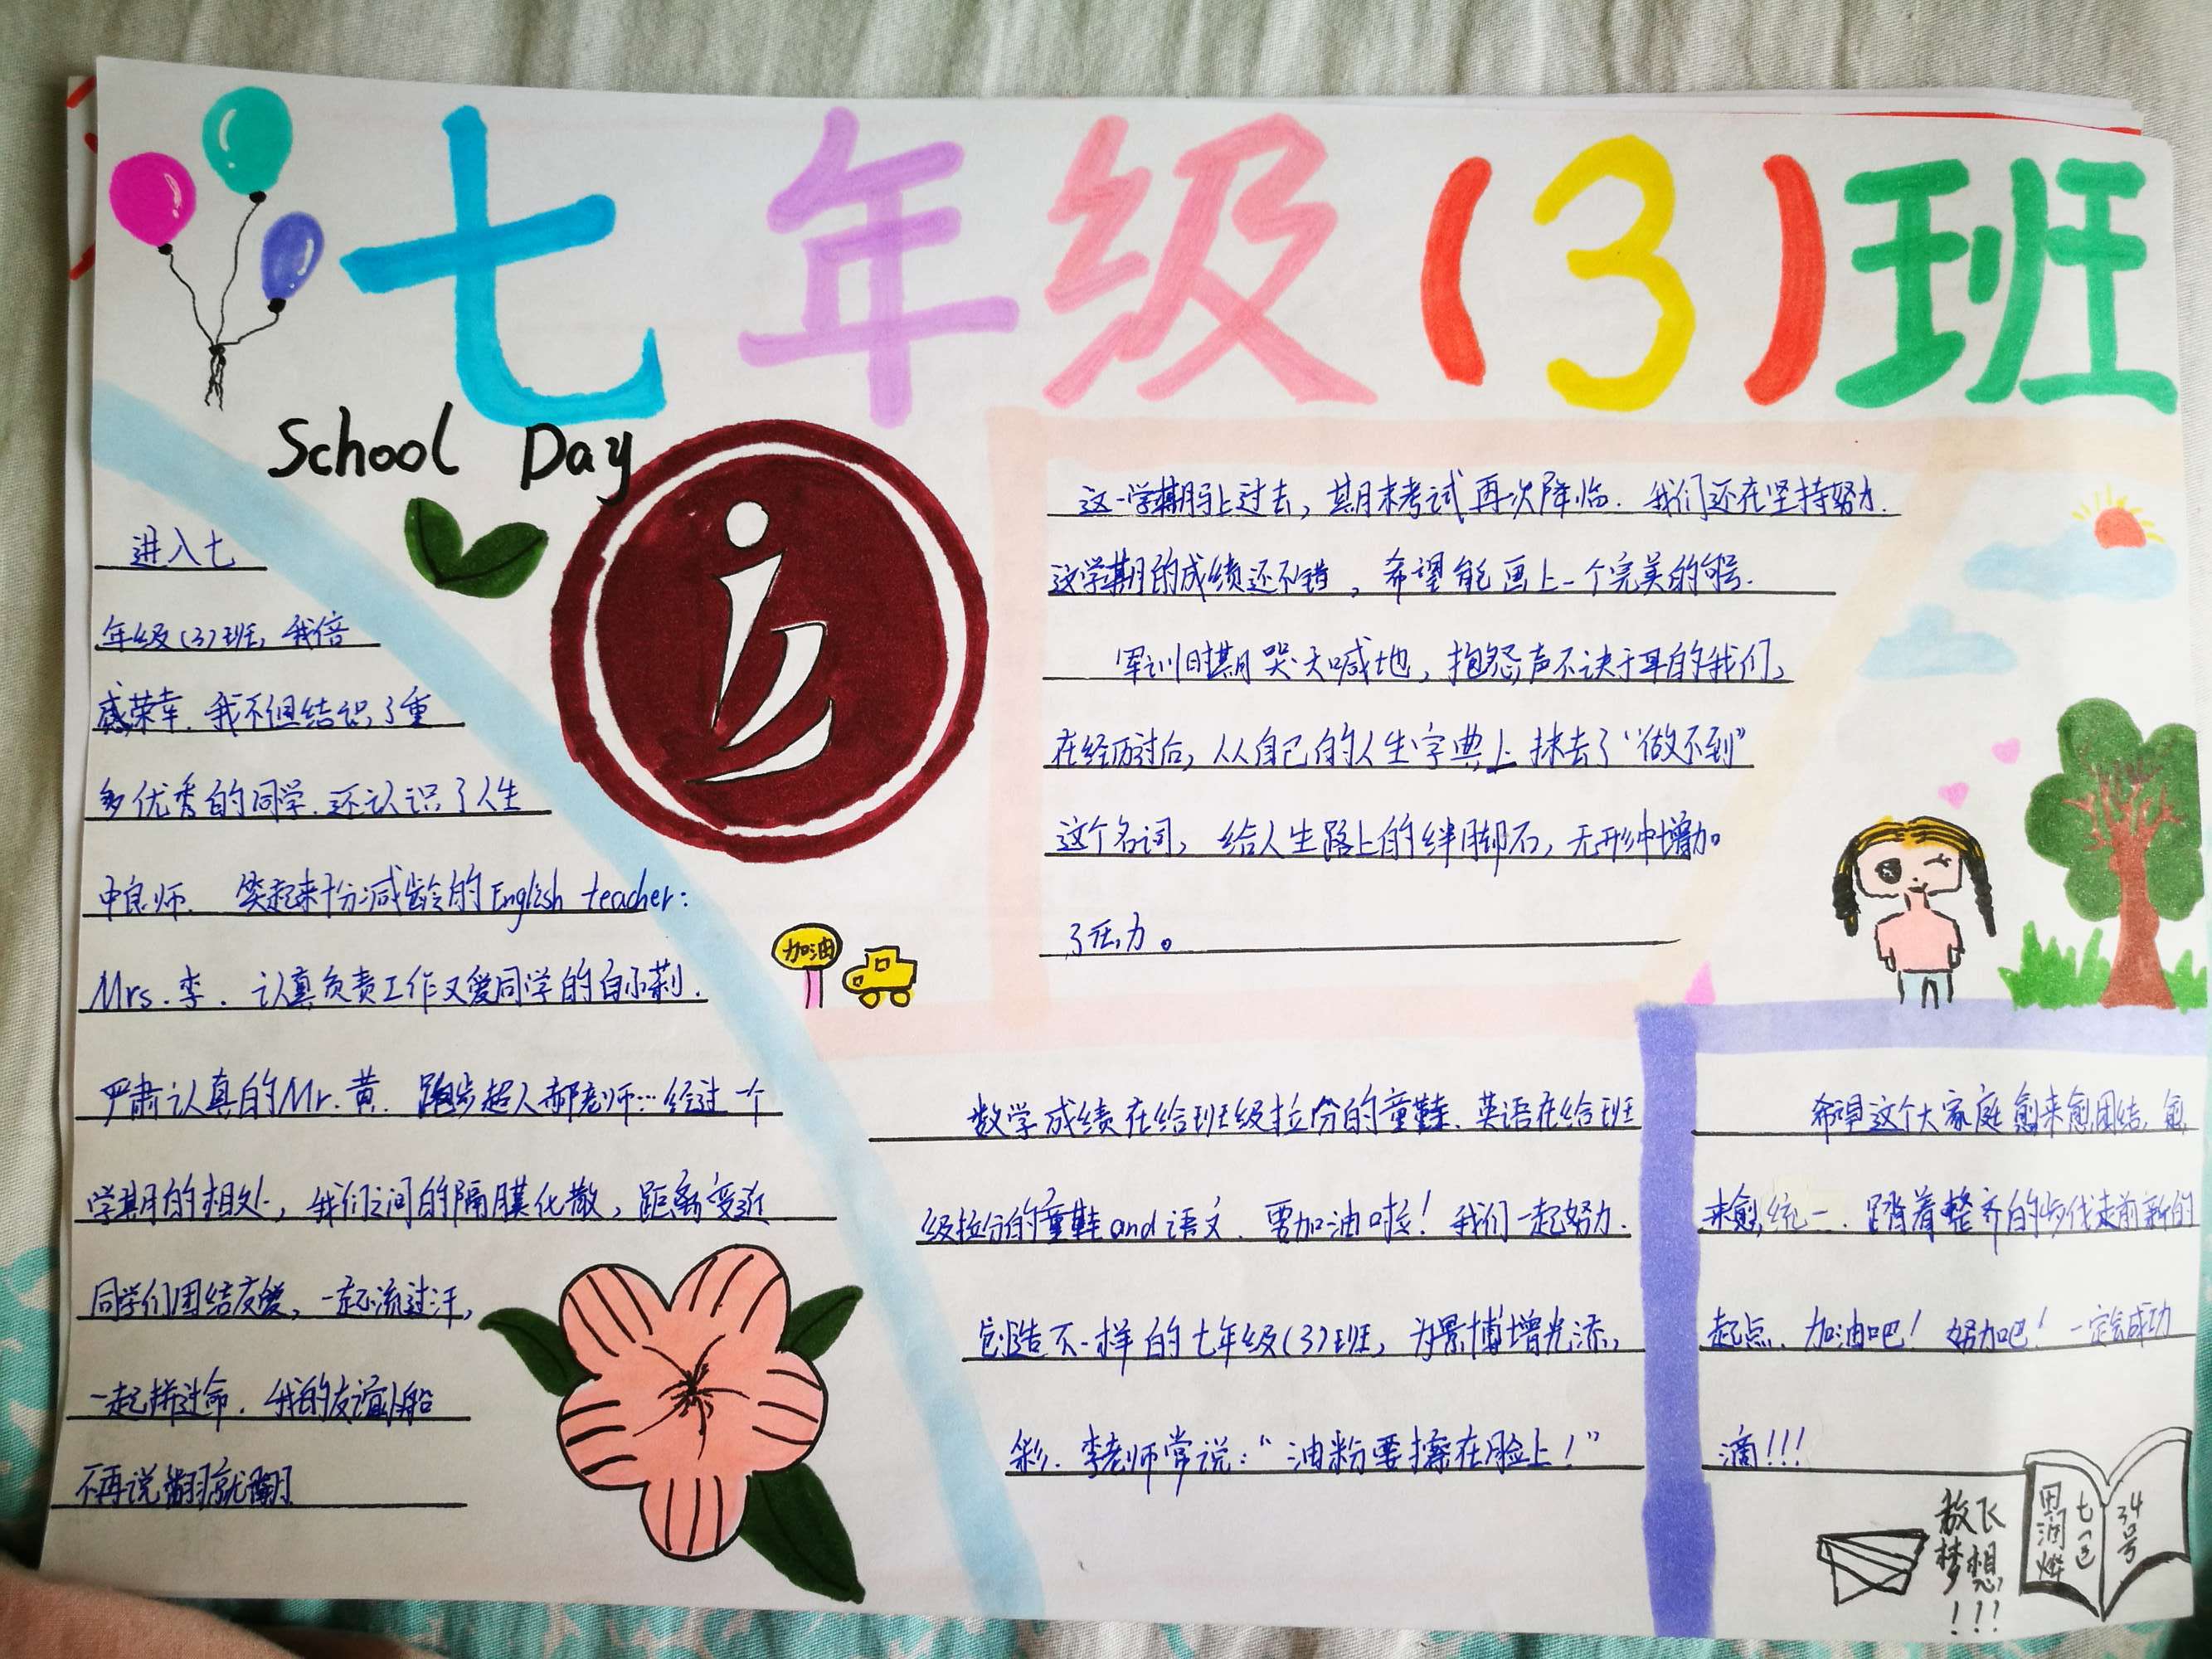 七年级(3)班
School Day
进入七
年级(3)班,我倍
感荣幸.我不但结识了重
多优秀的同学.还认识了人生
中良师. 笑起来十分减龄的English teacher:
Mrs.李. 认真负责工作又爱同学的白小莉.
严肃认真的Mr.黄. 跑步超人郝老师…经过一个
学期的相处,我们之间的隔膜化散,距离变近
同学们团结友爱,一起流过汗,
一起拼过命.我的友谊小船
不再说翻就翻
加油
这一学期马上过去,期末考试再次降临.我们还在坚持努力.
这学期的成绩还不错,希望能画上一个完美的句号.
军训时期哭天喊地,抱怨声不诀于耳的我们,
在经历过后,从人自己的人生字典上抹去了“做不到”
这个名词,给人生路上的绊脚石,无形中增加
了压力。
数学成绩在给班级拉分的童鞋.英语在给班
级拉分的童鞋and语文.要加油啦!我们一起努力.
创造不一样的七年级(3)班,为景博增光添,
彩.李老师常说:“油粉要擦在脸上!”
希望这个大家庭愈来愈团结,愈
来愈统一.踏着整齐的步伐走前新的
起点.加油吧!努力吧!一定会成功
滴!!!
放飞
梦想
!!!!
七(3)
34号